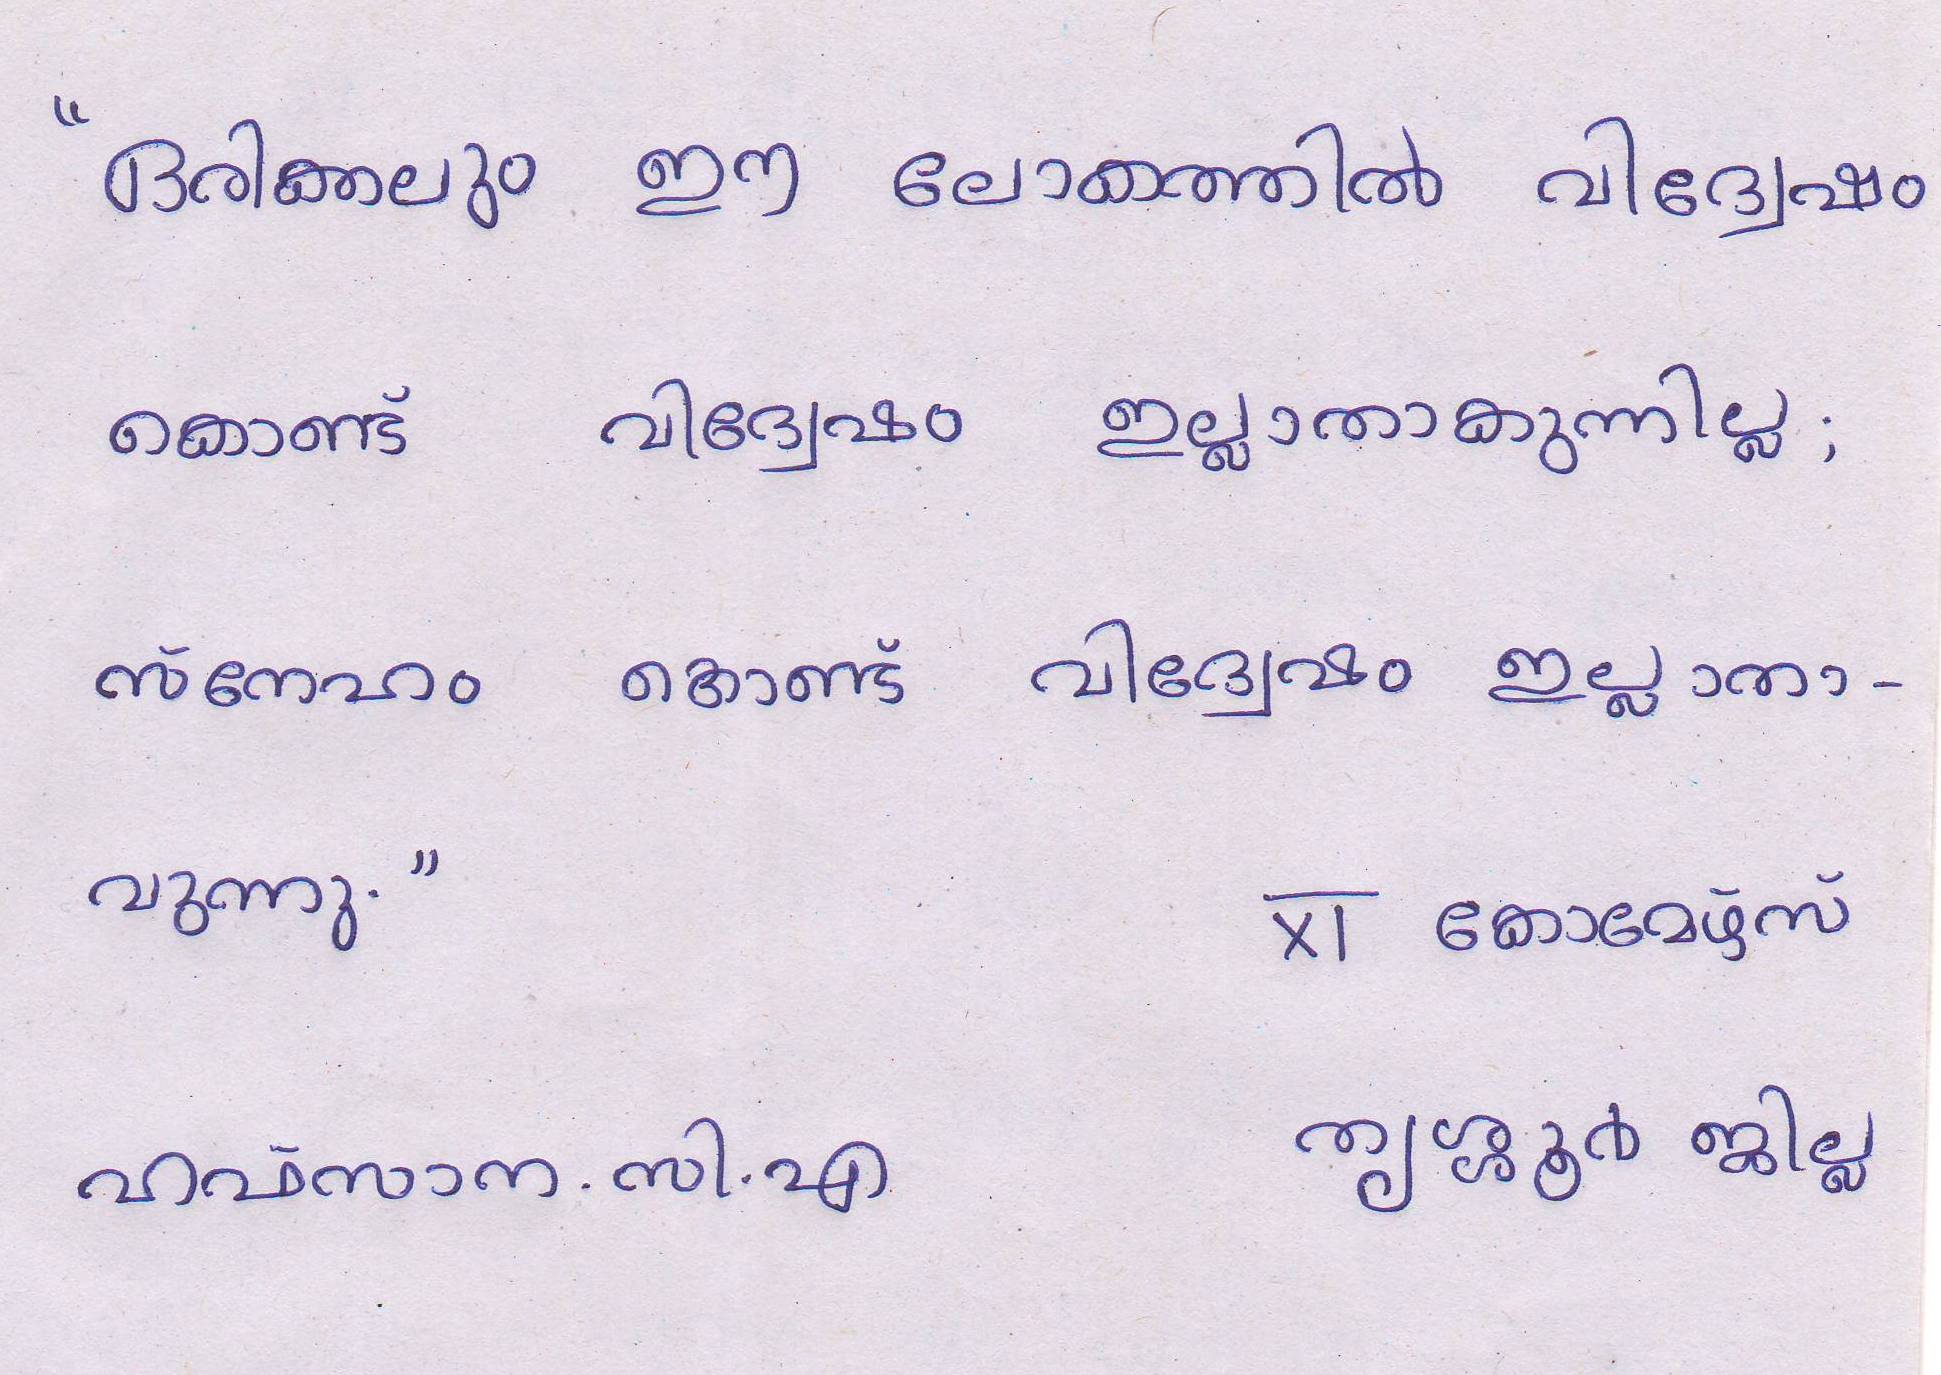 “ഒരിക്കലും ഈ ലോകത്തിൽ വിദ്വേഷം
കൊണ്ട് വിദ്വേഷം ഇല്ലാതാകുന്നില്ല;
സ്നേഹം കൊണ്ട് വിദ്വേഷം ഇല്ലാതാ-
വുന്നു.”
XI കോമേഴ്സ്
ഹഫ്സാന.സി.എ
തൃശ്ശൂർ ജില്ല